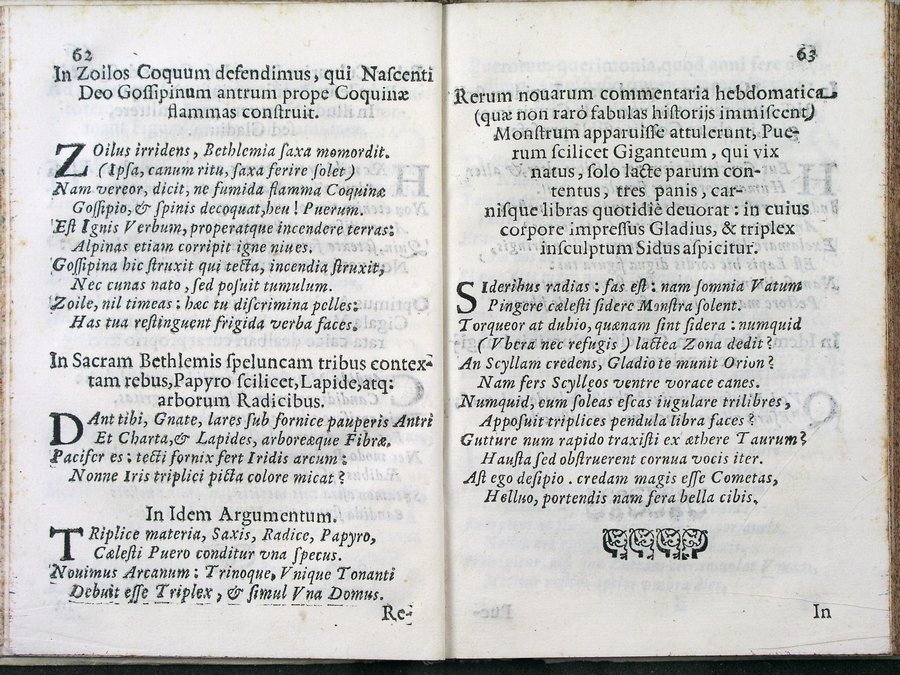 62
In Zoilos Coquum defendimus, qui Nascenti
Deo Goſſipinum antrum prope Coquinæ
flammas conſtruit.
ZOilus irridens, Bethlemia ſaxa momordit.
(Ipſa, canum ritu, ſaxa ferire ſolet)
Nam vereor, dicit, ne fumida flamma Coquinæ
Goſſipio, & ſpinis decoquat, heu! Puerum.
Eſt Ignis Verbum, properatque incendere terras:
Alpinas etiam corripit igne niues.
Goſſipina hic ſtruxit qui tecta, incendia ſtruxit,
Nec cunas nato, ſed poſuit tumulum.
Zoile, nil timeas: hæc tu diſcrimina pelles:
Has tua reſtinguent frigida verba faces.
In Sacram Bethlemis ſpeluncam tribus contex-
tam rebus, Papyro ſcilicet, Lapide, atq;
arborum Radicibus.
DAnt tibi, Gnate, lares ſub fornice pauperis Antri
Et Charta, & Lapides, arboreæque Fibræ.
Pacifer es: tecti fornix fert Iridis arcum:
Nonne Iris triplici picta colore micat?
In Idem Argumentum.
TRiplice materia, Saxis, Radice, Papyro,
Cæleſti Puero conditur vna ſpecus.
Nouimus Arcanum: Trinoque, Vnique Tonanti
Debuit eſſe Triplex, & ſimul Vna Domus.
Re-
63
Rerum nouarum commentaria hebdomatica
(quæ non rarò fabulas hiſtorijs immiſcent)
Monſtrum apparuiſſe attulerunt, Pue-
rum ſcilicet Giganteum, qui vix
natus, ſolo lacte parum con-
tentus, tres panis, car-
niſque libras quotidiè deuorat: in cuius
corpore impreſſus Gladius, & triplex
inſculptum Sidus aſpicitur.
SIderibus radias: fas eſt: nam ſomnia Vatum
Pingere cæleſti ſidere Monſtra ſolent.
Torqueor at dubio, quænam ſint ſidera: numquid
(Vbera nec refugis) lactea Zona dedit?
An Scyllam credens, Gladio te munit Orion?
Nam fers Scyllęos ventre vorace canes.
Numquid, cum ſoleas eſcas iugulare trilibres,
Appoſuit triplices pendula libra faces?
Gutture num rapido traxiſti ex æthere Taurum?
Hauſta ſed obſtruerent cornua vocis iter.
Aſt ego deſipio. credam magis eſſe Cometas,
Helluo, portendis nam fera bella cibis.
In